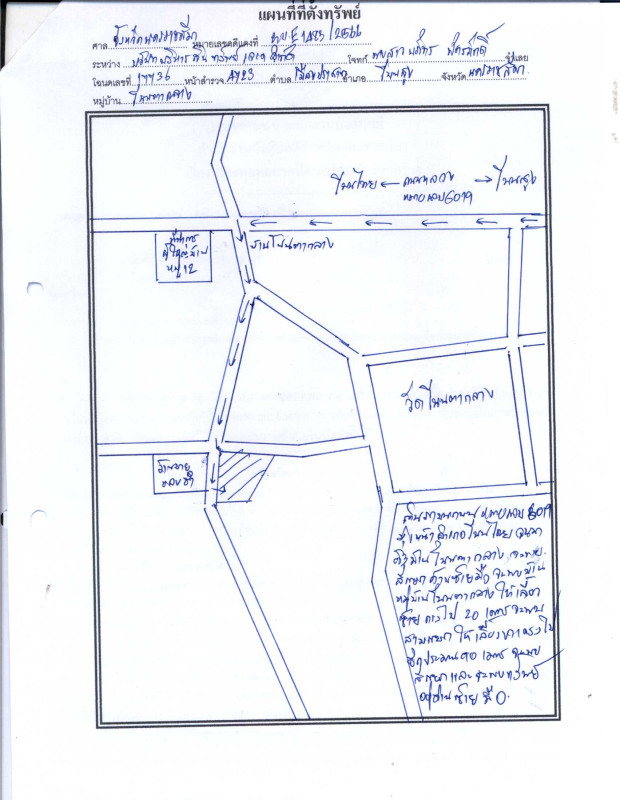 แผนที่ที่ตั้งทรัพย์
ศาล จังหวัดนครราชสีมา หมายเลขคดีแดงที่ ผบE1483/2566
ระหว่าง โจทก์ นางสาว จำเลย
โฉนดเลขที่ 17736 หน้าสำรวจ ตำบล อำเภอ โนนสูง จังหวัด นครราชสีมา
หมู่บ้าน โนนตากลาง
โนนไทย ← ถนนหลวง → โนนสูง
หมายเลข 6019
บ้านโนนตากลาง
ที่ทำการ
ผู้ใหญ่บ้าน
หมู่ 12
วัดโนนตากลาง
ร้านขาย
ของชำ
เดินทางตามถนน หมายเลข 6019
มุ่งหน้าอำเภอโนนไทย จนมา
ถึงบ้านโนนตากลาง จะพบ
สี่แยก ด้านซ้ายมือ จะพบป้าย
หมู่บ้านโนนตากลาง ให้เลี้ยว
ซ้าย ตรงไป 20 เมตร จะพบ
สามแยก ให้เลี้ยวขวาตรงไป
อีกประมาณ 90 เมตร จะพบ
สี่แยก และจะพบทรัพย์
อยู่ด้านซ้ายมือ